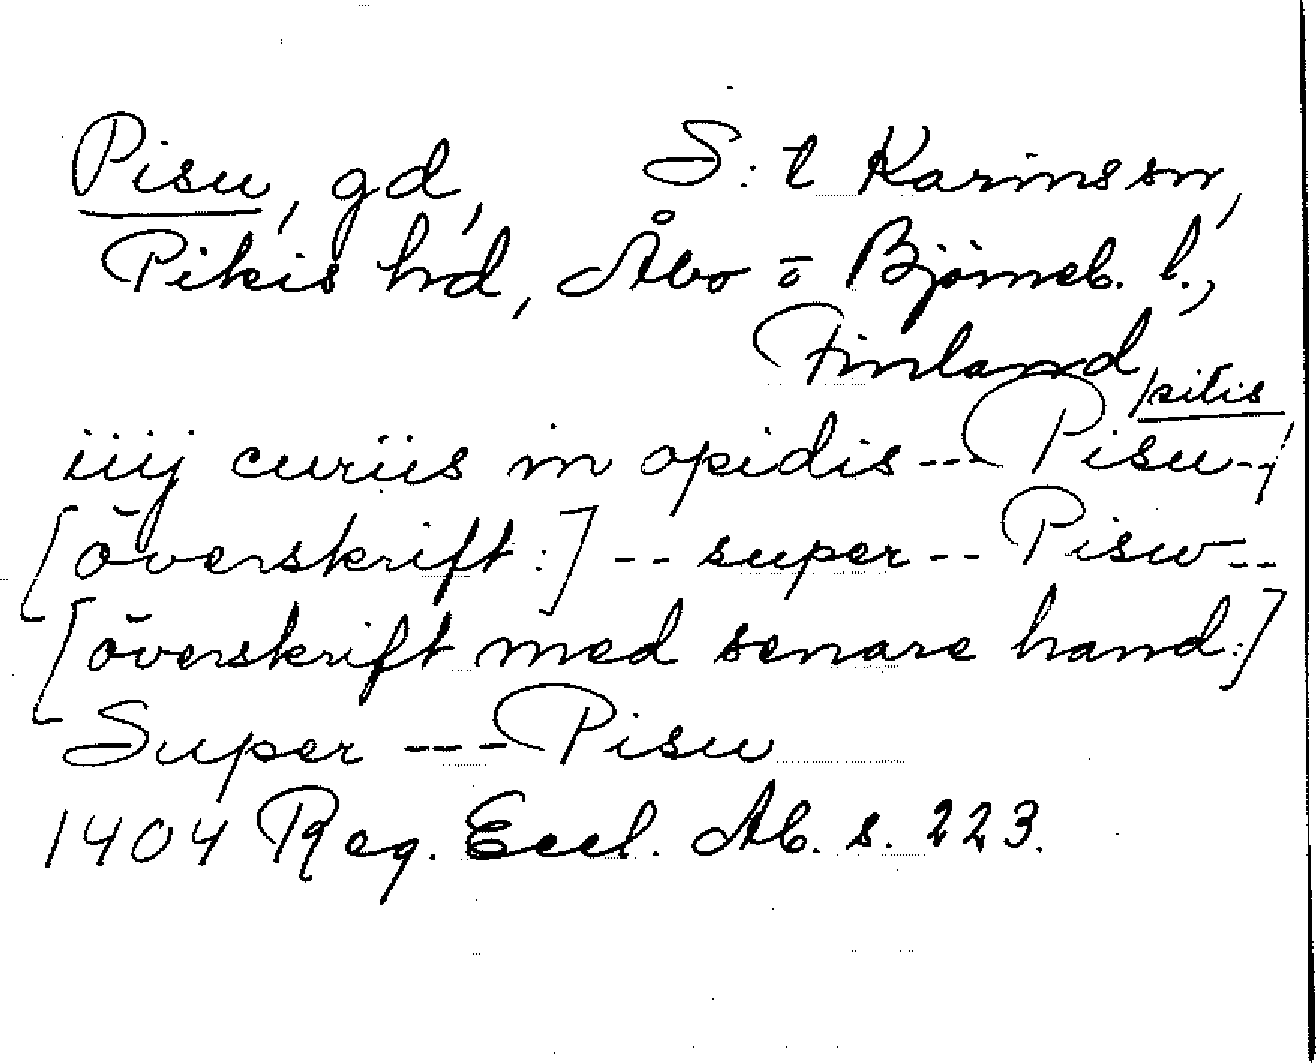 Pisu, gd, S:t Karins sn,
Pikis hd, Åbo o Björneb. l.,
Finland
sitis
iiij curiis in opidis -- Pisu --
[överskrift:] -- super -- Pisw --
[överskrift med senare hand:]
Super --- Pisu
1404 Reg. Eccl. Ab. s. 223.